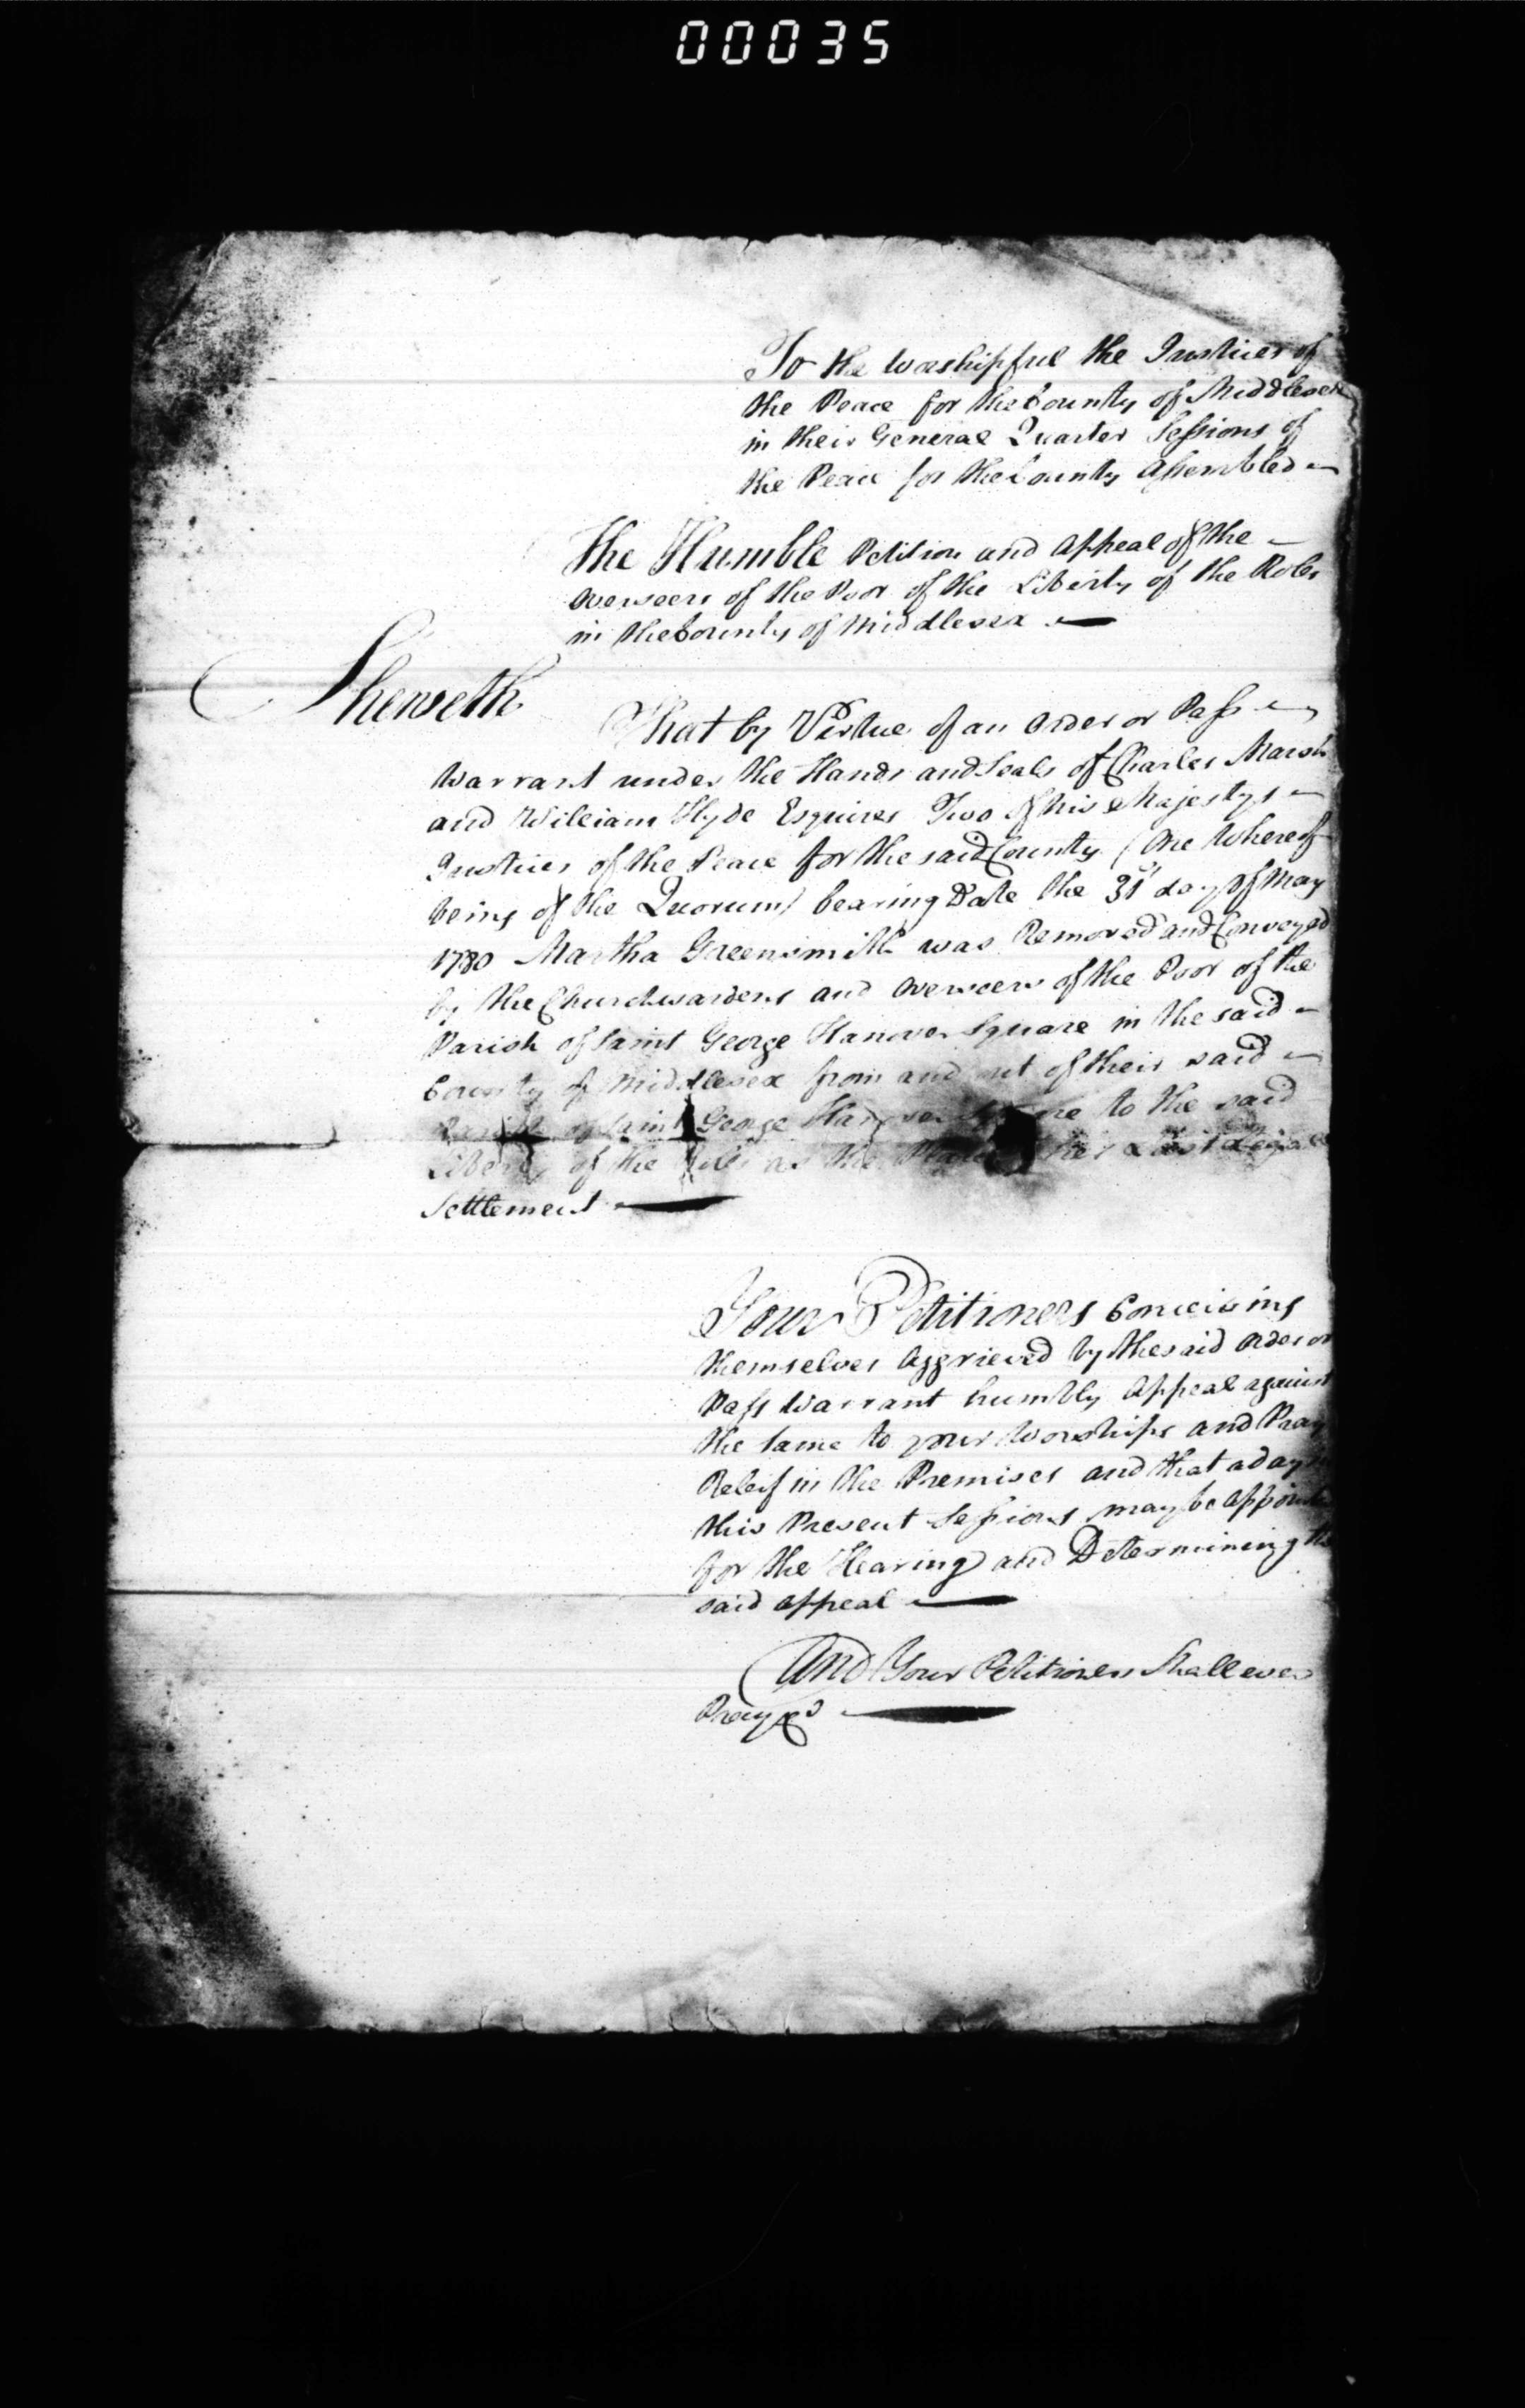 00035
To the Worshipful the Justices of
the Peace for the County of Middlesex
in their General Quarter Sessions of
the Peace for the County Assembled
The Humble Petition and Appeal of the
Overseers of the Poor of the Liberty of the Rolls
in the County of Middlesex
Sheweth
That by Virtue of an Order or Pass
Warrant under the Hands and Seals of Charles Marsh
and William Hyde Esquires Two of his Majestys
Justices of the Peace for the said County (One Whereof
being of the Quorum) bearing Date the 31st day of May
1780 Martha Greensmith was Removed and Conveyed
by the Churchwardens and Overseers of the Poor of the
Parish of Saint George Hanover Square in the said
County of Middlesex from and out of their said
Parish of Saint George Hanover Square to the said
Liberty of the Rolls as the Place of her Last Legal
Settlement
Your Petitioners Conceiving
themselves Aggrieved by the said Order or
Pass Warrant humbly Appeal against
the Same to your Worships and Pray
Releif in the Premises and that a day
this Present Sessions may be Appointed
for the Hearing and Determining the
said Appeal
And Your Petitioners Shall ever
Pray &c